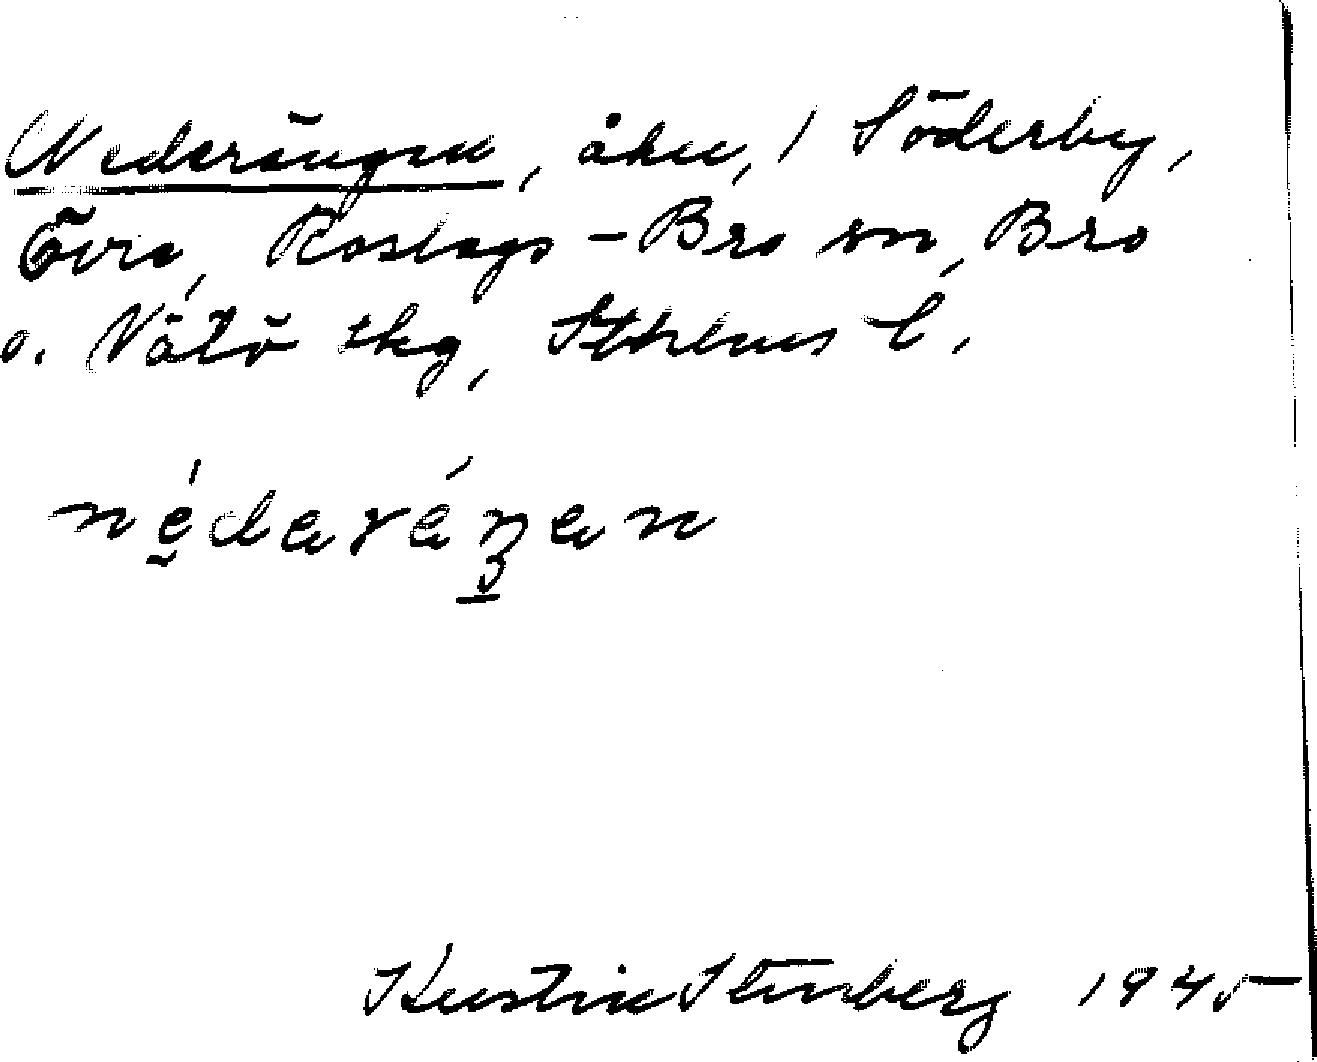 Nederängen, åker, i Söderby,
Övre, Roslags-Bro sn, Bro
o. Vätö skg, Sthlms l.
nédaréŋen
Kerstin Stenberg 1945